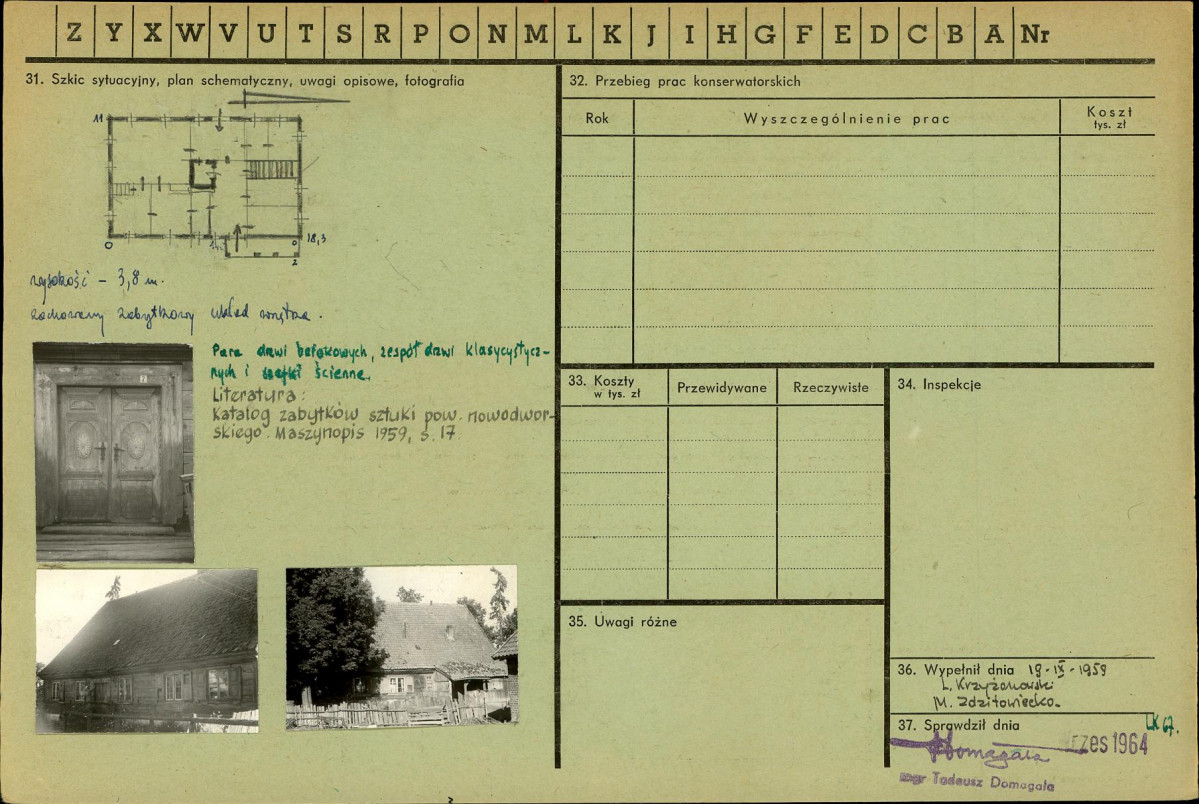 Z Y X W V U T S R P O N M L K J I H G F E D C B A Nr
31. Szkic sytuacyjny, plan schematyczny, uwagi opisowe, fotografia
11
0
0
18,3
2
wysokość – 3,8 m.
zachowany zabytkowy układ wnętrza.
Para drzwi barokowych, zespół drzwi klasycystycz-
nych i szafki ścienne.
Literatura:
Katalog zabytków sztuki pow. nowodwor-
skiego. Maszynopis 1959, s. 17.
2
32. Przebieg prac konserwatorskich
Rok
Wyszczególnienie prac
Koszt
tys. zł
33. Koszty
w tys. zł
Przewidywane
Rzeczywiste
34. Inspekcje
35. Uwagi różne
36. Wypełnił dnia 19-IX-1959
L. Krzyżanowski
M. Zdzitowiecka
37. Sprawdził dnia
LK 67.
1964
Domagała
mgr Tadeusz Domagała